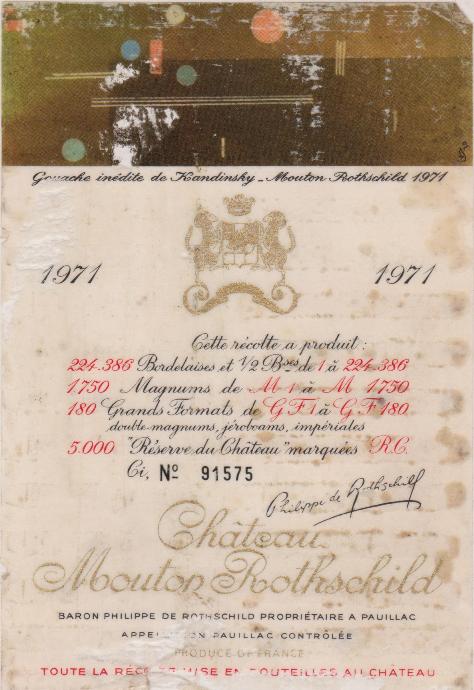 Gouache inédite de Kandinsky - Mouton Rothschild 1971
1971 1971
Cette récolte a produit :
224.386 Bordelaises et 1/2 Bses de 1 à 224.386
1750 Magnums de M 1 à M 1750
180 Grands Formats de G F 1 à G F 180
double-magnums, jéroboams, impériales
5.000 "Réserve du Château" marquées R.C.
Ci, No 91575
Philippe de Rothschild
Château
Mouton Rothschild
BARON PHILIPPE DE ROTHSCHILD PROPRIÉTAIRE A PAUILLAC
PAUILLAC CONTRÔLÉE
PRODUCE OF FRANCE
TOUTE LA MISE EN BOUTEILLES AU CHÂTEAU